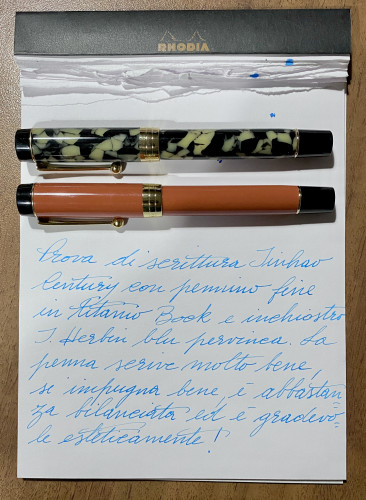 RHODIA
Prova di scrittura Jinhao
Century con pennino fine
in titanio Bock e inchiostro
J. Herbin blu pervinca. La
penna scrive molto bene,
si impugna bene, è abbastan=
za bilanciata ed è gradevo=
le esteticamente!